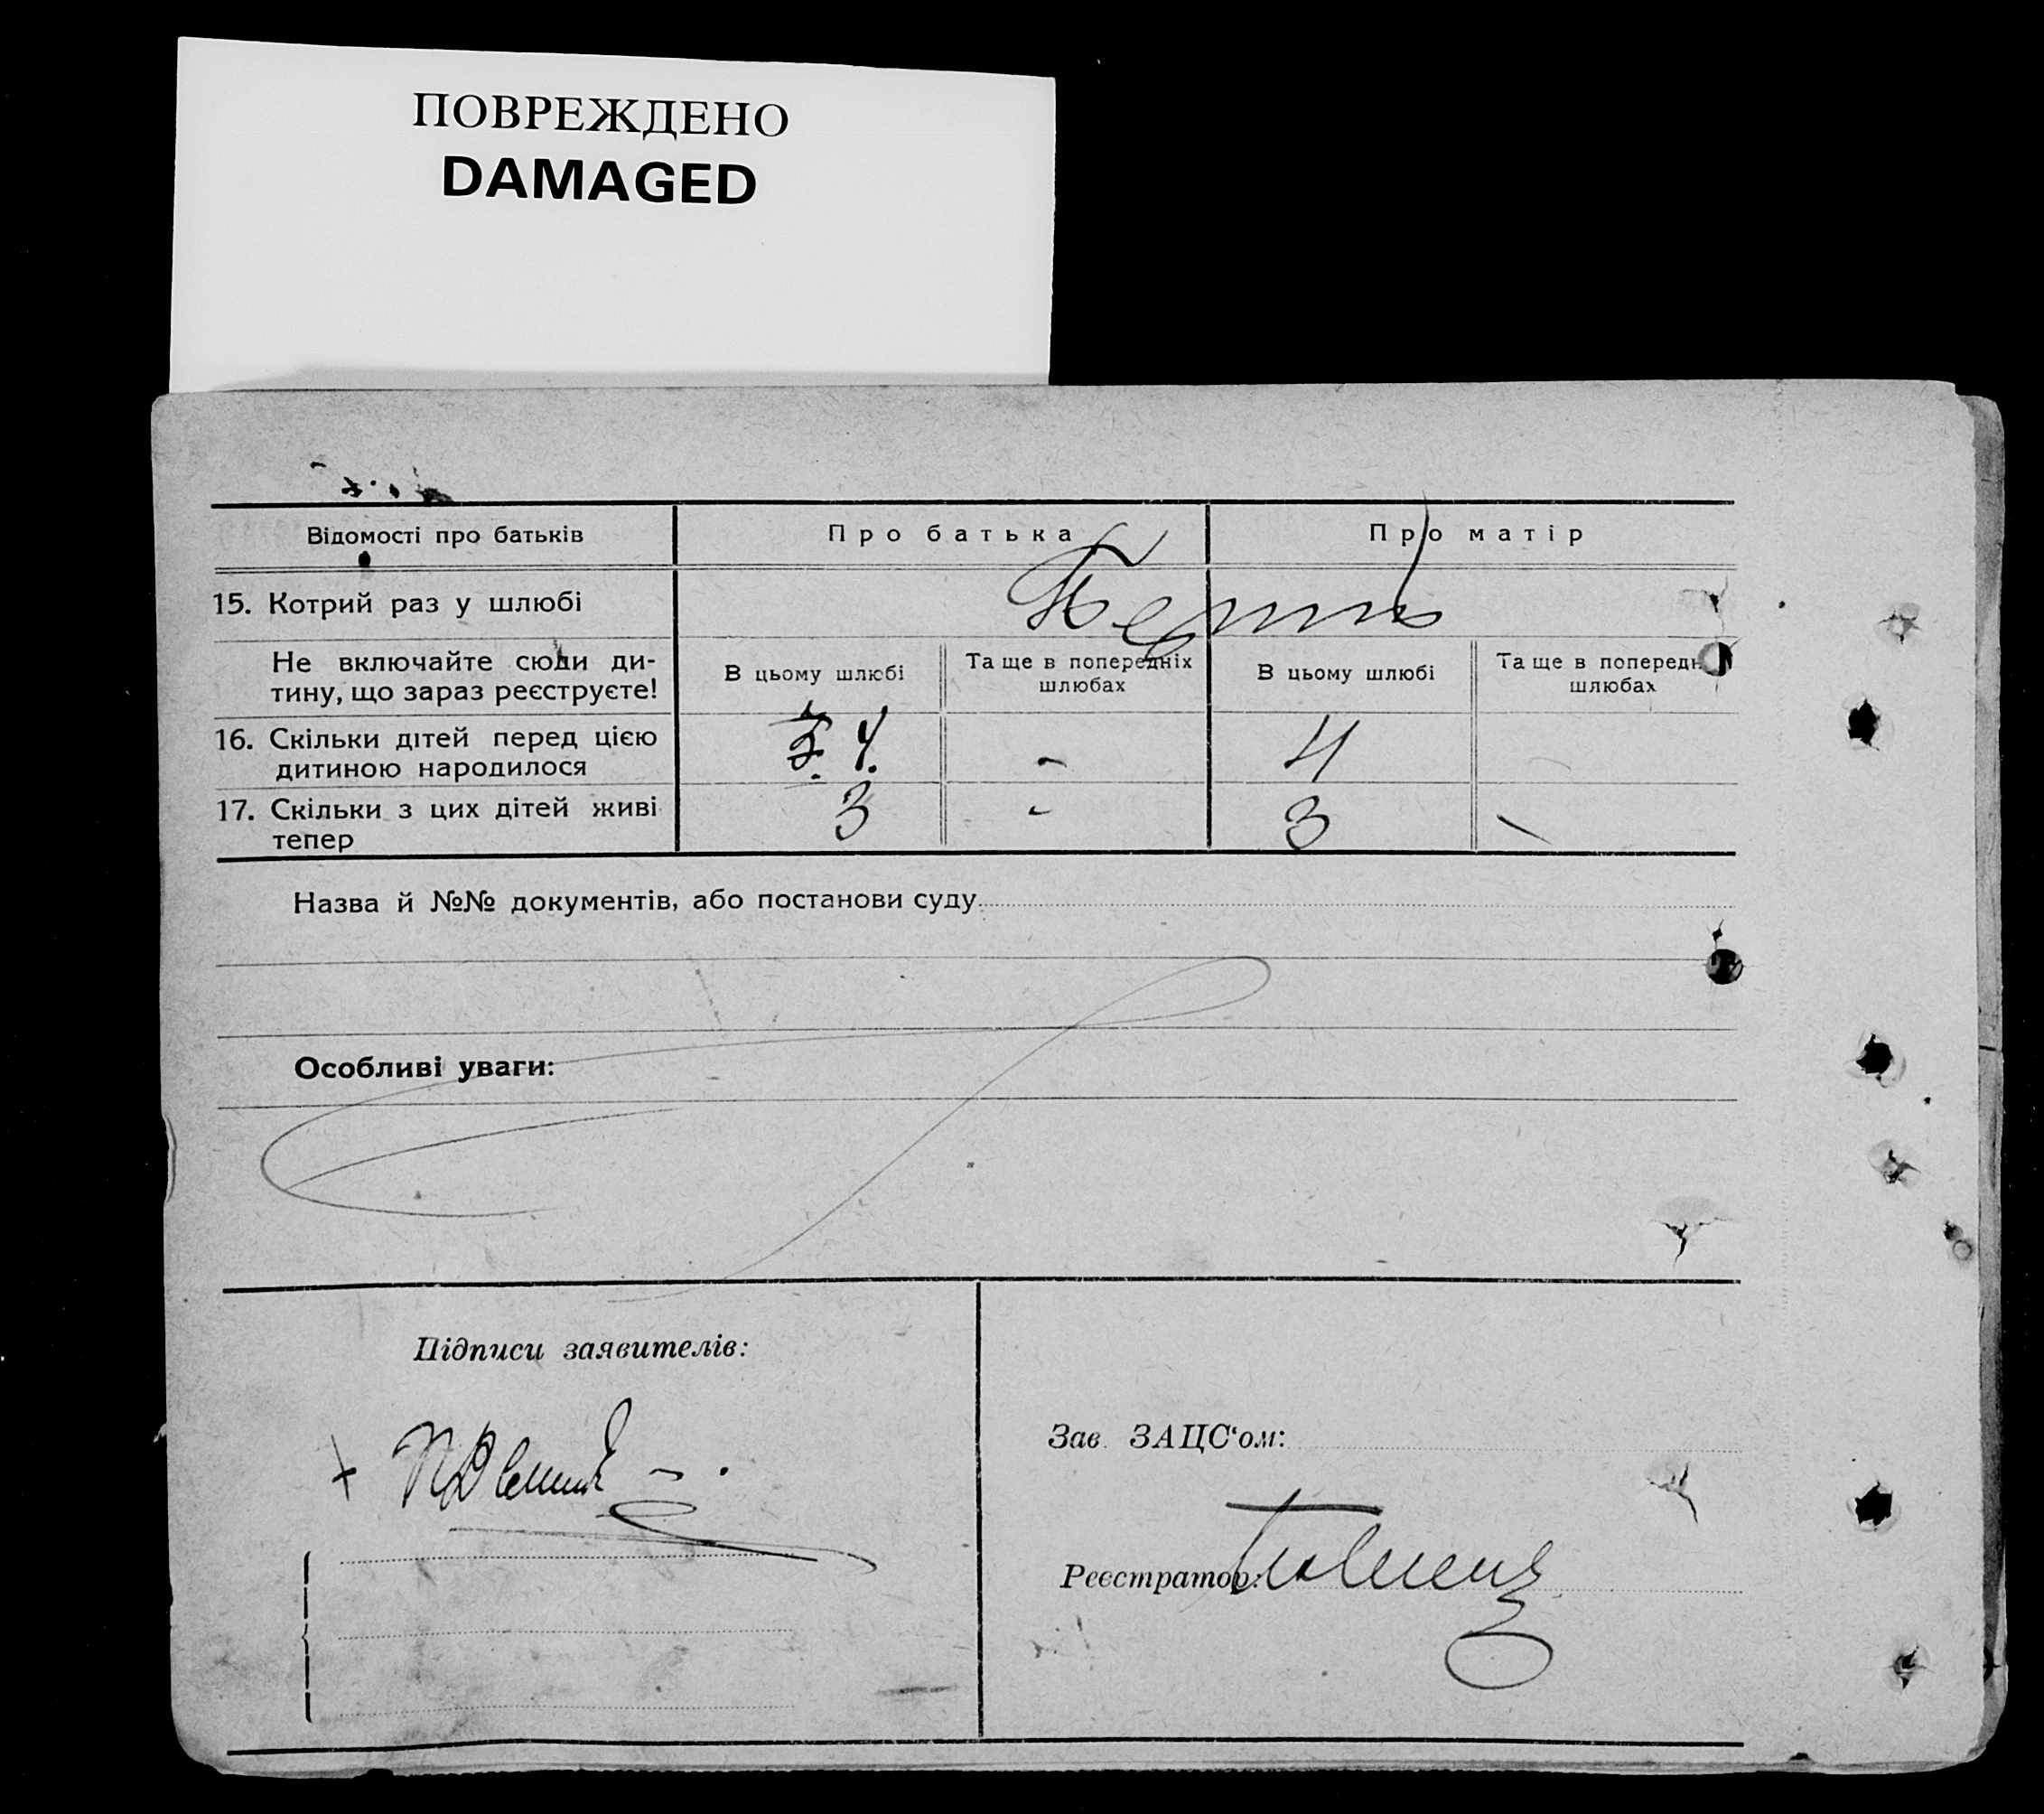 ПОВРЕЖДЕНО
DAMAGED
Відомості про батьків
Про батька
Про матір
15. Котрий раз у шлюбі
Не включайте сюди ди-
тину, що зараз реєструєте!
В цьому шлюбі
Та ще в попередніх
шлюбах
В цьому шлюбі
Та ще в попередн
шлюбах
16. Скільки дітей перед цією
дитиною народилося
4.
-
4
17. Скільки з цих дітей живі
тепер
3
-
3
-
Назва й №№ документів, або постанови суду
Особливі уваги:
Підписи заявителів:
Зав. ЗАЦС‘ом:
Реєстратор: